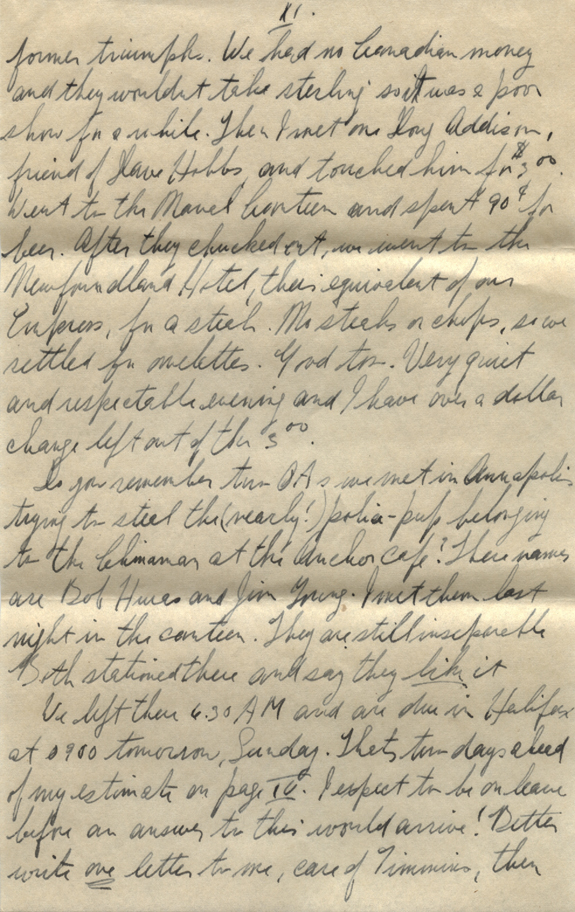 XI.
former triumphs. We had no Canadian money
and they wouldnt take sterling so it was a poor
show for a while. Then I met one Doug Addison,
friend of Dave Hobbs, and touched him for $5 00.
Went to the Naval Canteen and spent 90 ¢ for
beer. After they chucked out, we went to the
Newfoundland Hotel, their equivalent of our
Empress, for a steak. No steaks or chops, so we
settled for omelettes. Good too. Very quiet
and respectable evening and I have over a dollar
change left out of the 5 00.
Do you remember two OAs we met in Annapolis
trying to steal the (nearly!) police-pup belonging
to the Chinaman at the Anchor cafe? There names
are Bob and Jim Young. I met them last
night in the canteen. They are still inseperable
Both stationed there and say they like it
We left there 6.30 AM and are due in Halifax
at 0900 tomorrow, Sunday. Thats two days ahead
of my estimate on page IV. I expect to be on leave
before an answer to this would arrive! Better
write one letter to me, care of Timmins, then